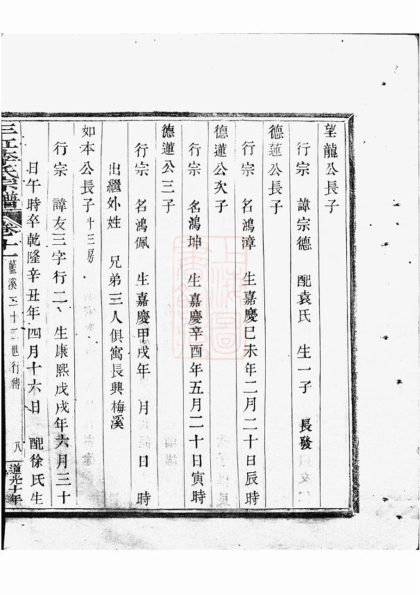 望龍公長子
行宗 諱宗德 配袁氏 生一子 長發
德蓮公長子
行宗 名鴻漳 生嘉慶巳未年二月二十日辰時
德蓮公次子
行宗 名鴻坤 生嘉慶辛酉年五月二十日寅時
德蓮公三子
行宗 名鴻佩 生嘉慶甲戌年 月 日 時
出繼外姓 兄弟三人俱寓長興梅溪
如本公長子十三房
行宗 諱友三字行二、生康熙戊戌年六月三十
日午時卒乾隆辛丑年四月十六日 配徐氏生
三江李氏宗譜 卷十二 蘆溪三十三世行傳 八 道光十年